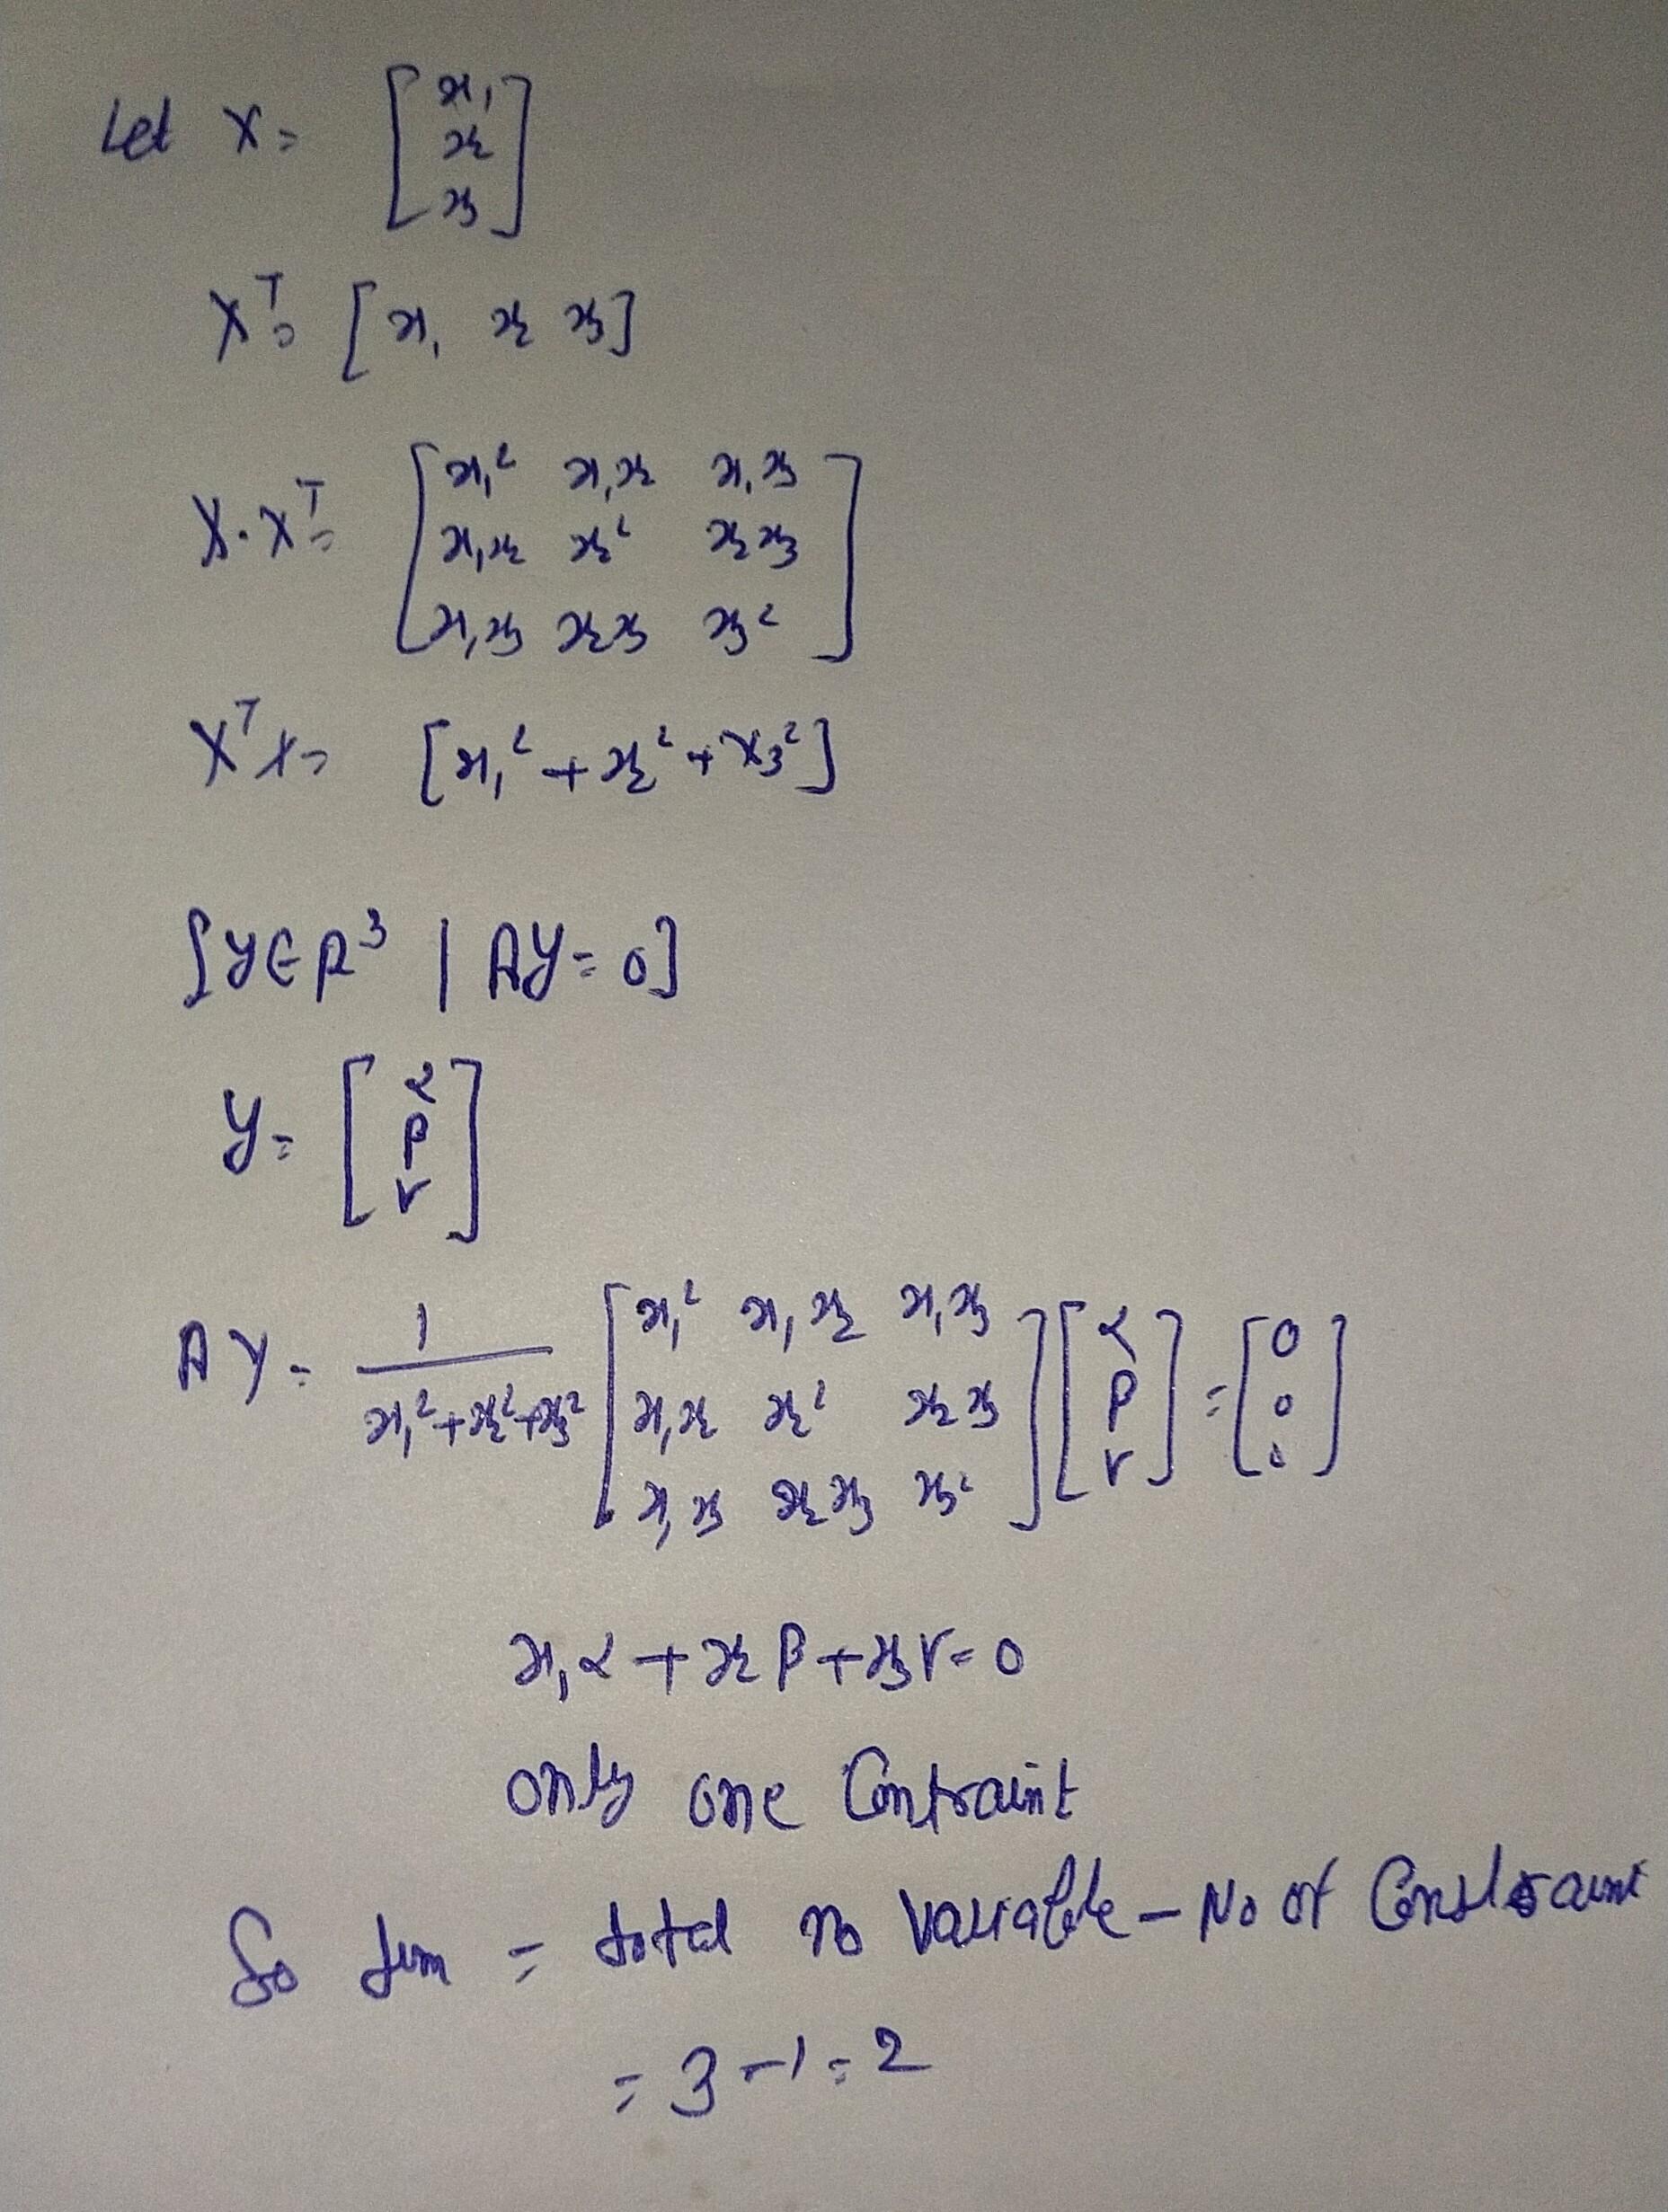 Let X = [x₁ x₂ x₃]
Xᵀ = [x₁ x₂ x₃]
X·Xᵀ = [x₁² x₁x₂ x₁x₃
x₁x₂ x₂² x₂x₃
x₁x₃ x₂x₃ x₃²]
XᵀX = [x₁² + x₂² + x₃²]
{Y ∈ R³ | AY = 0}
Y = [α β γ]
AY = 1/(x₁² + x₂² + x₃²) [x₁² x₁x₂ x₁x₃
x₁x₂ x₂² x₂x₃
x₁x₃ x₂x₃ x₃²] [α β γ] = [0 0 0]
x₁α + x₂β + x₃γ = 0
only one Contraint
So dim = total no variable – No of Constraint
= 3 – 1 = 2